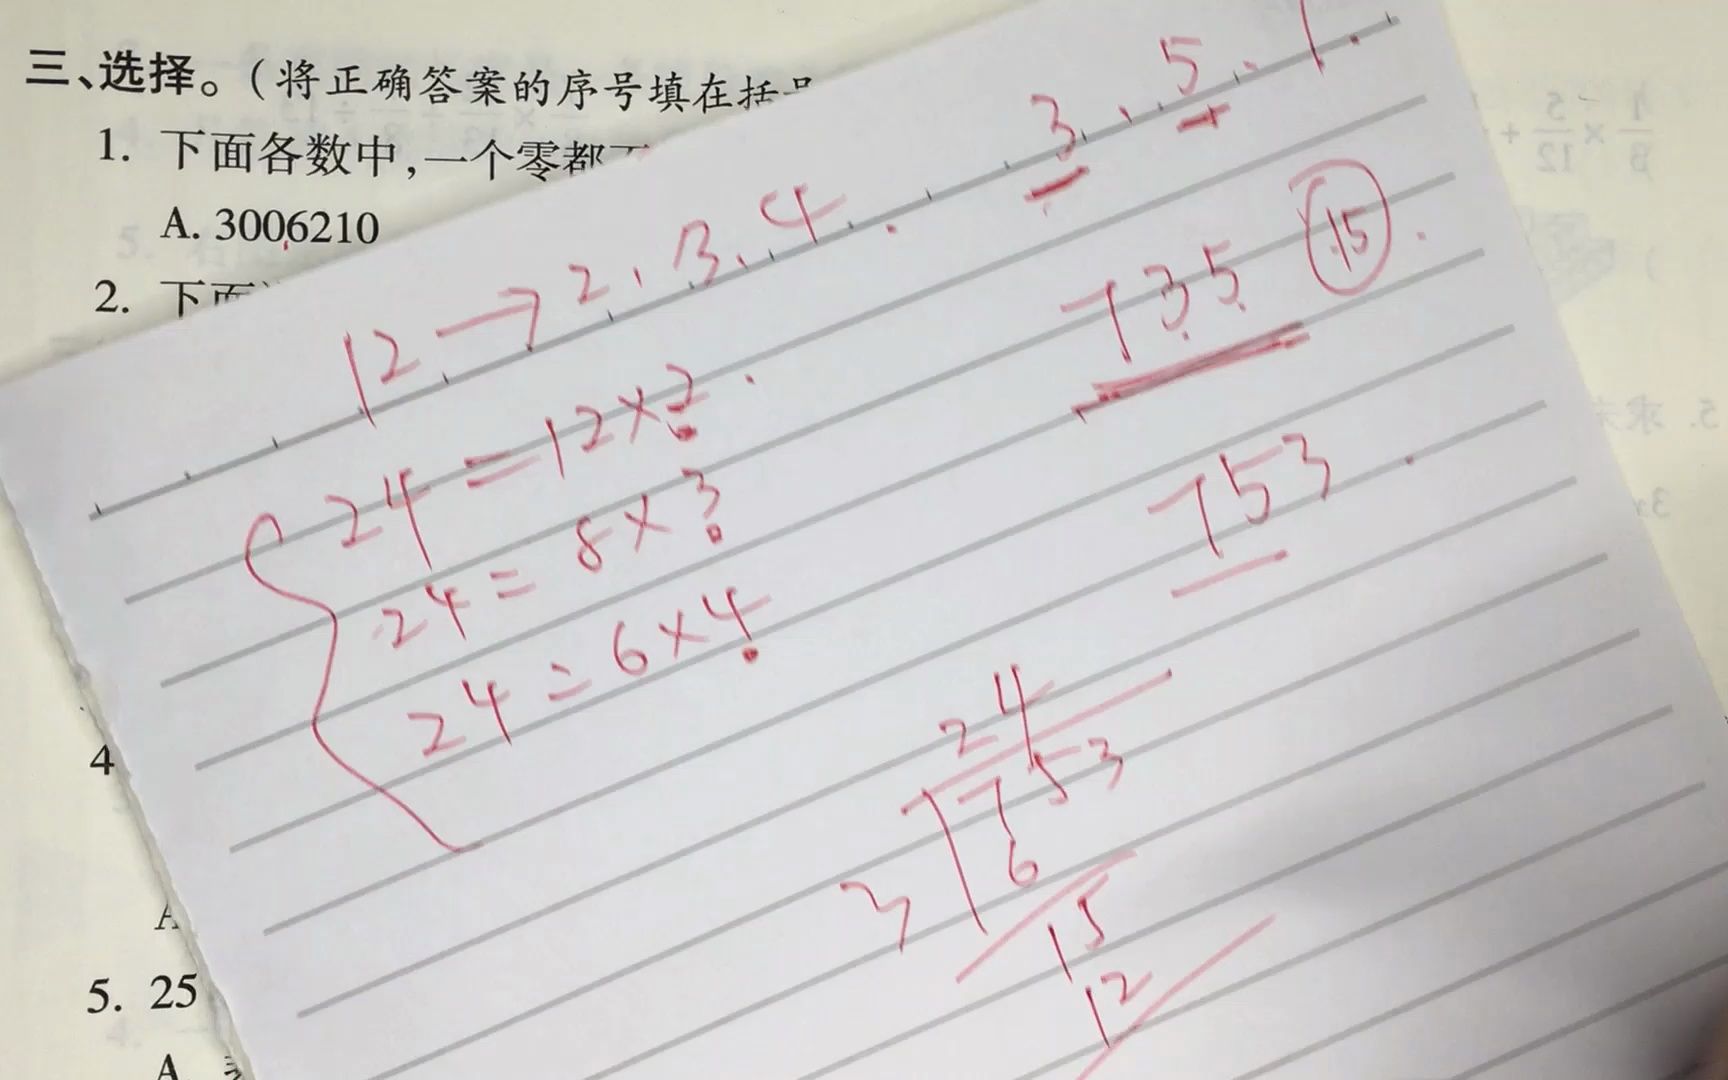 三、选择。(将正确答案的序号填在括号
1. 下面各数中,一个零都
A. 3006210
2. 下面
4
A
5. 25
A.
12→2,3,4.
24=12×2
24=8×3
24=6×4
3、5、1.
735 15
753
24
3 753
6
15
12